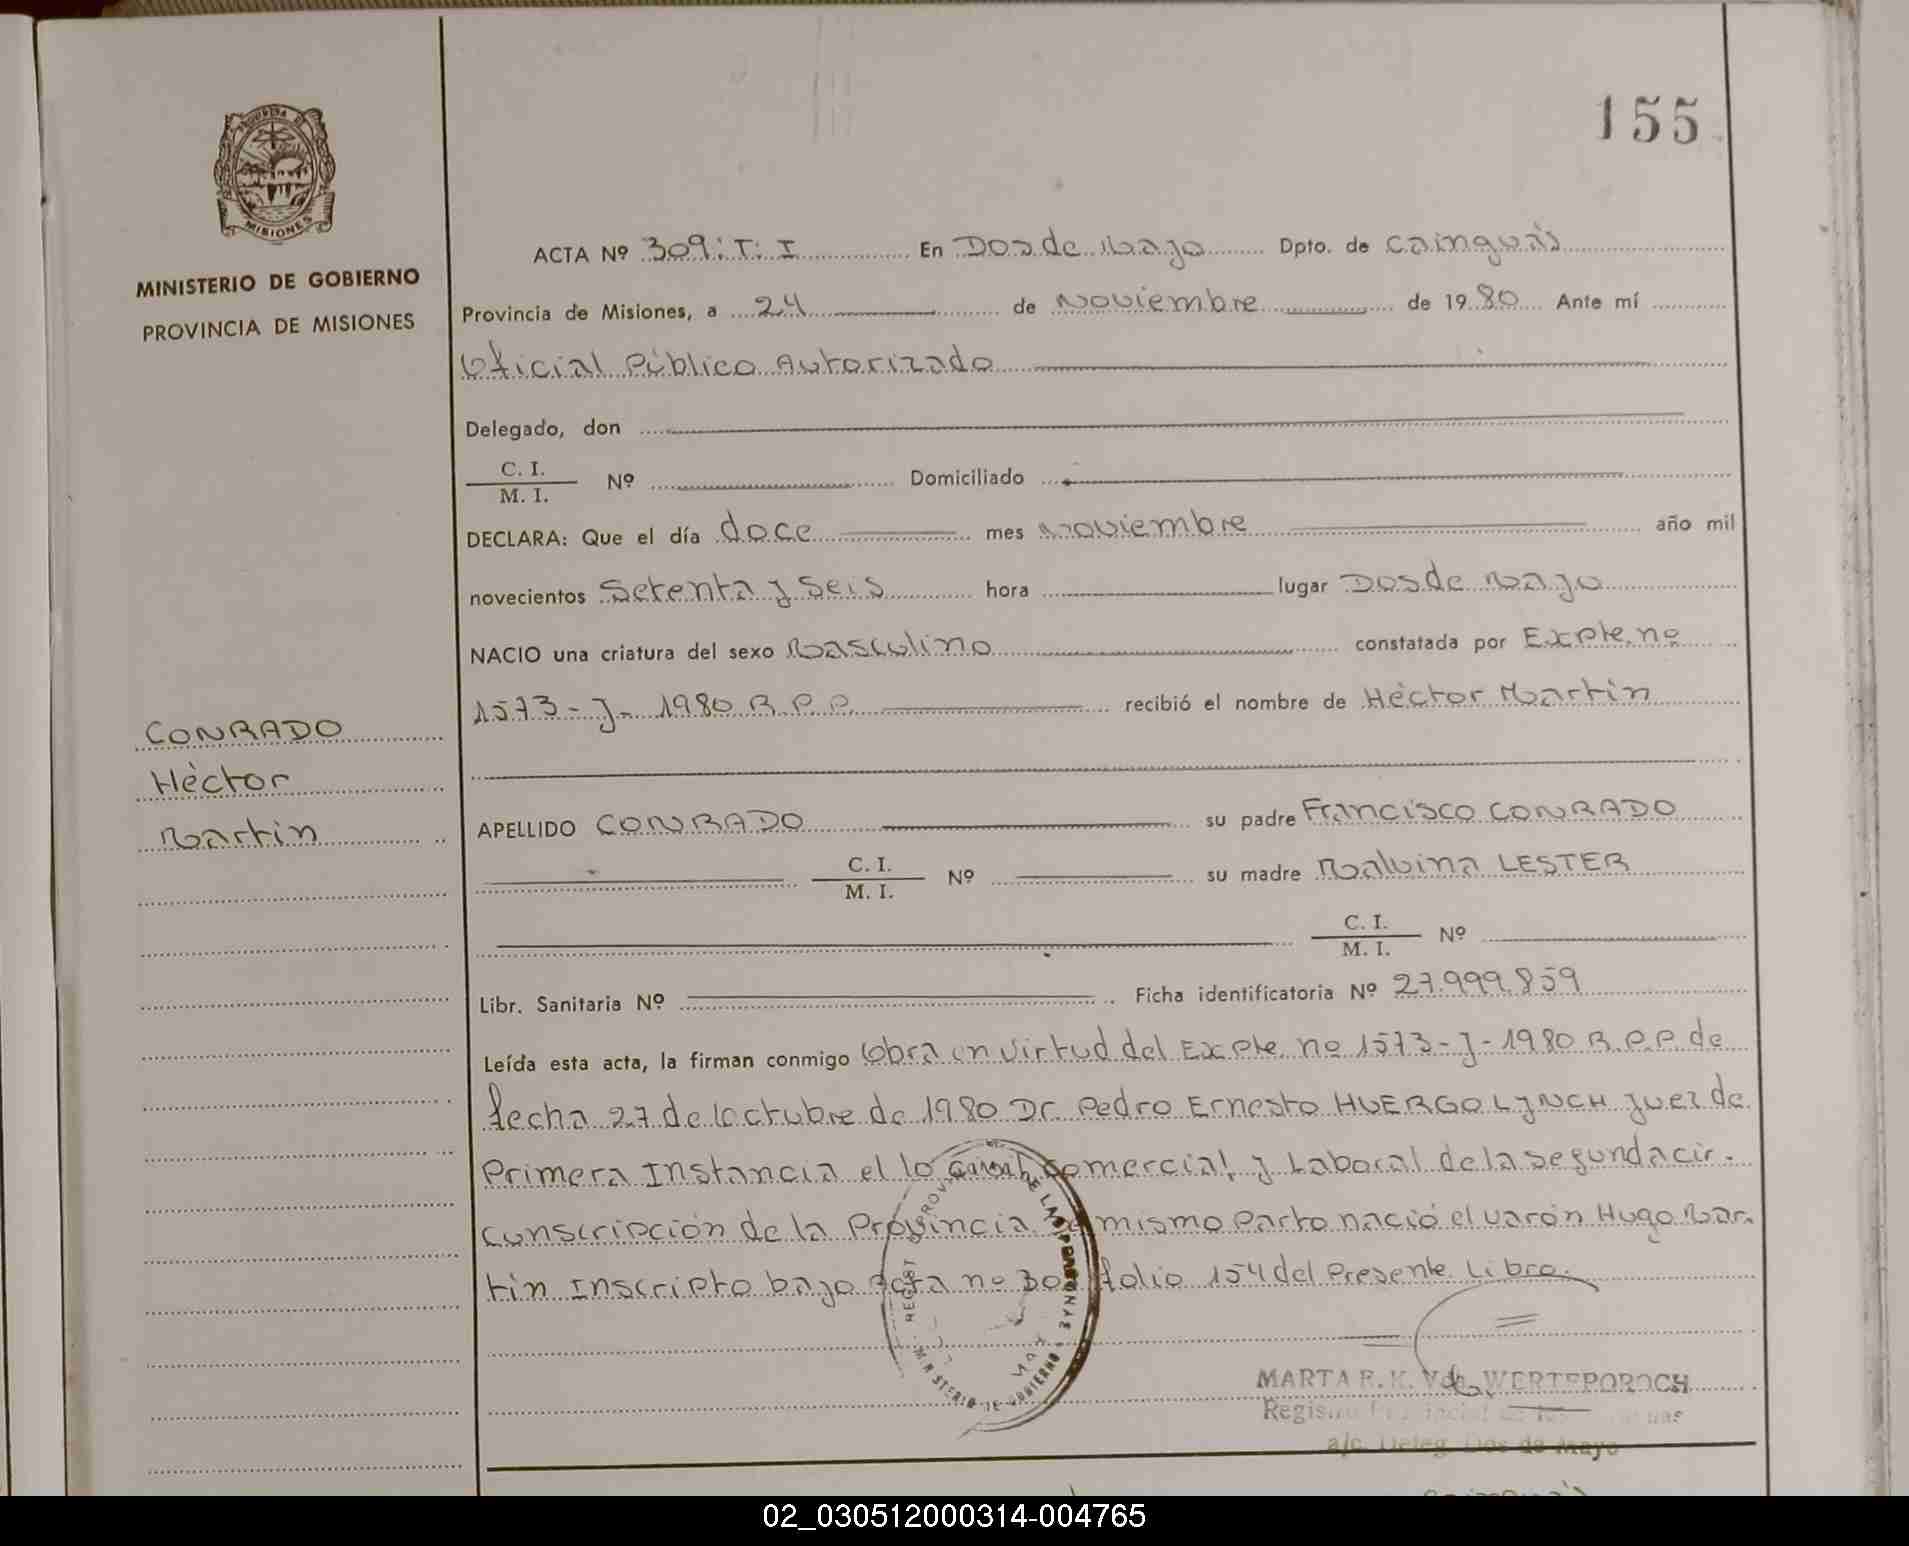 155
PROVINCIA DE
MISIONES
MINISTERIO DE GOBIERNO
PROVINCIA DE MISIONES
ACTA Nº 309: T: I En Dos de Mayo Dpto. de Cainguás
Provincia de Misiones, a 24 de Noviembre de 1980 Ante mí
Oficial Público Autorizado
Delegado, don
C. I.
M. I. Nº Domiciliado
DECLARA: Que el día doce mes Noviembre año mil
novecientos Setenta y Seis hora lugar Dos de Mayo
NACIO una criatura del sexo Masculino constatada por Expte. nº
1573-J-1980 R.P.P. recibió el nombre de Héctor Martín
CONRADO
Héctor
Martín
APELLIDO CONRADO su padre Francisco CONRADO
C. I.
M. I. Nº su madre Malvina LESTER
C. I.
M. I. Nº
Libr. Sanitaria Nº Ficha identificatoria Nº 27.999.859
Leída esta acta, la firman conmigo Obra en virtud del Expte. nº 1573-J-1980 R.P.P. de
fecha 27 de Octubre de 1980 Dr. Pedro Ernesto HUERGO LYNCH Juez de
Primera Instancia e[n] lo Comercial y Laboral de la Segunda cir-
cunscripción de la Provincia mismo parto nació el varón Hugo Mar-
tín Inscripto bajo acta nº folio 154 del Presente Libro.
MARTA R. K. Vda. WERTEPOROCH
Registro Provincial de las
a/c. Deleg. Dos de Mayo
02_030512000314-004765